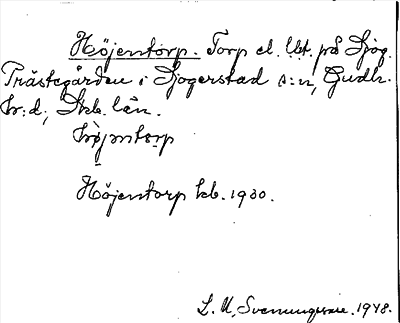 Höjentorp. Torp el. lht. på Sjög.
Prästegården i Sjogerstad s:n, Gudh.
hr:d, Skb. län.
Höjentorp kb. 1930.
L. M. Svenungsson. 1948.